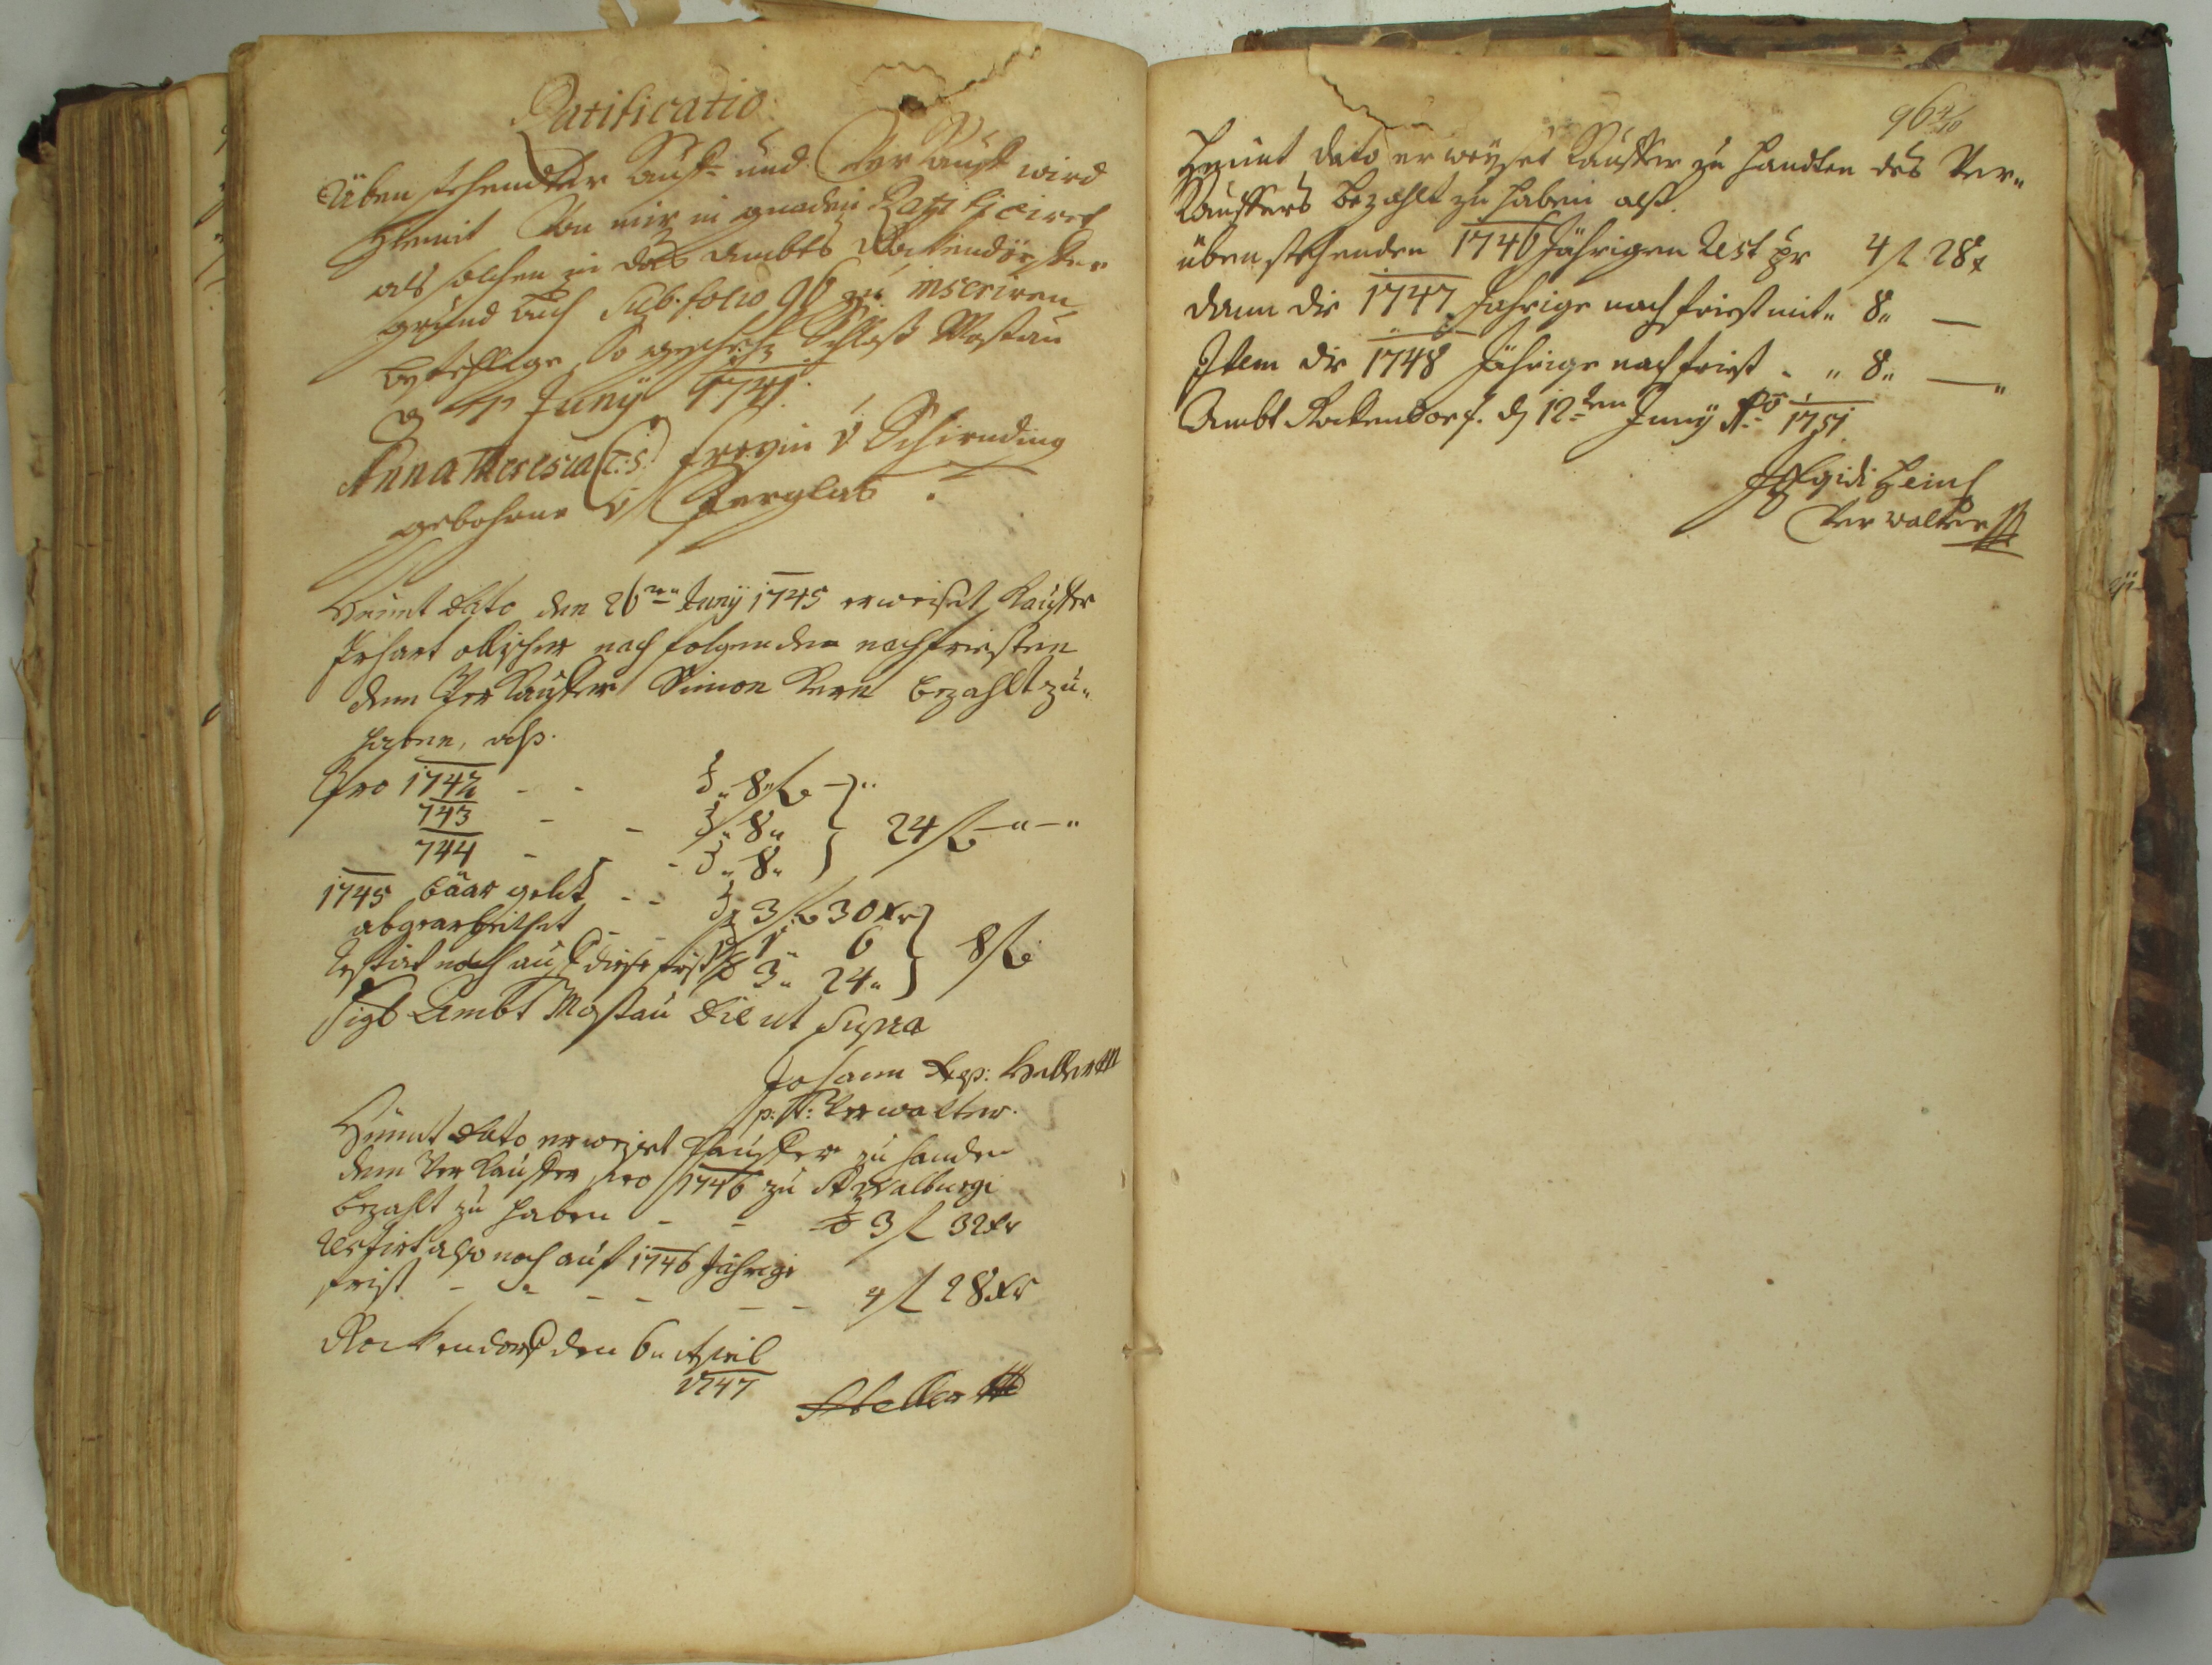 Ratificatio:
Üben stehendter Kauff- und Verkauff wird
Hiemit Von mir in gnaden Ratificiret
als solchen in das Ambts Rockendorffer
grund Buch Sub. folio 96 zu inseriren
befehlige, So geschehen Schloß Mostau
Juny 1741.
Anna Theresia (L:S:) freyin v Schirnding
gebohrne v Perglas
Heunt dato den 26ten Juny 1745 erweiset Kauffer
Erhart nach folgenden nachfristen
dem Verkauffer Simon Kern bezahlt zu"
haben, alß.
Pro 1742 - - 8 fl —"
743 - - 8"
24 fl —"—"
744 - - - 8"
1745 baar gelt - - 3 fl 30 xr
abgearbeithet - - 1" 6
8 fl
Restirt noch auf diese frist 3" 24"
Sigl Ambt Mostau Die ut Supra
Johann Heller
p: t: Verwalter.
Heunt dato erweiset Kauffer zu handen
dem Verkauffer pro 1746 zu St Walburgi
bezahlt zu haben - - 3 fl 32 xr
Restirt also noch auf 1746 Jährige
frist - - - - - - 4 fl 28 xr
Rockendorf den 6" April
1747
Heller
96 4/10
Heunt dato erweyset Kauffer zu Handten des Ver"
Kauffers bezahlt zu haben alß.
übenstehenden 1746 Jährigen Rest pr 4 fl 28 x
dann die 1747 Jahrige nachfrist mit" 8" —
Item die 1748 Jährige nachfrist - " 8" — "
Ambt Rockendorf. d 12ten Juny Ao 1751
Egidi Heinl
Verwalter